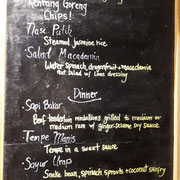 Kentang Goreng
Chips!
Nasi Putih
Steamed jasmine rice
Salad Macadamia
Water spinach, dragonfruit + macadamia
nut salad w/ lime dressing
Dinner
Sapi Bakar
Beef tenderloin medallions grilled to medium or
medium rare w/ ginger-sesame soy sauce
Tempe Manis
Tempe in a sweet sauce
Sayur Urap
Snake bean, spinach sprouts + coconut stirfry